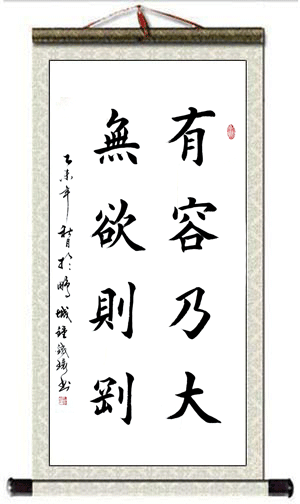 有容乃大
無欲則剛
乙未年秋月於鵬城鐘